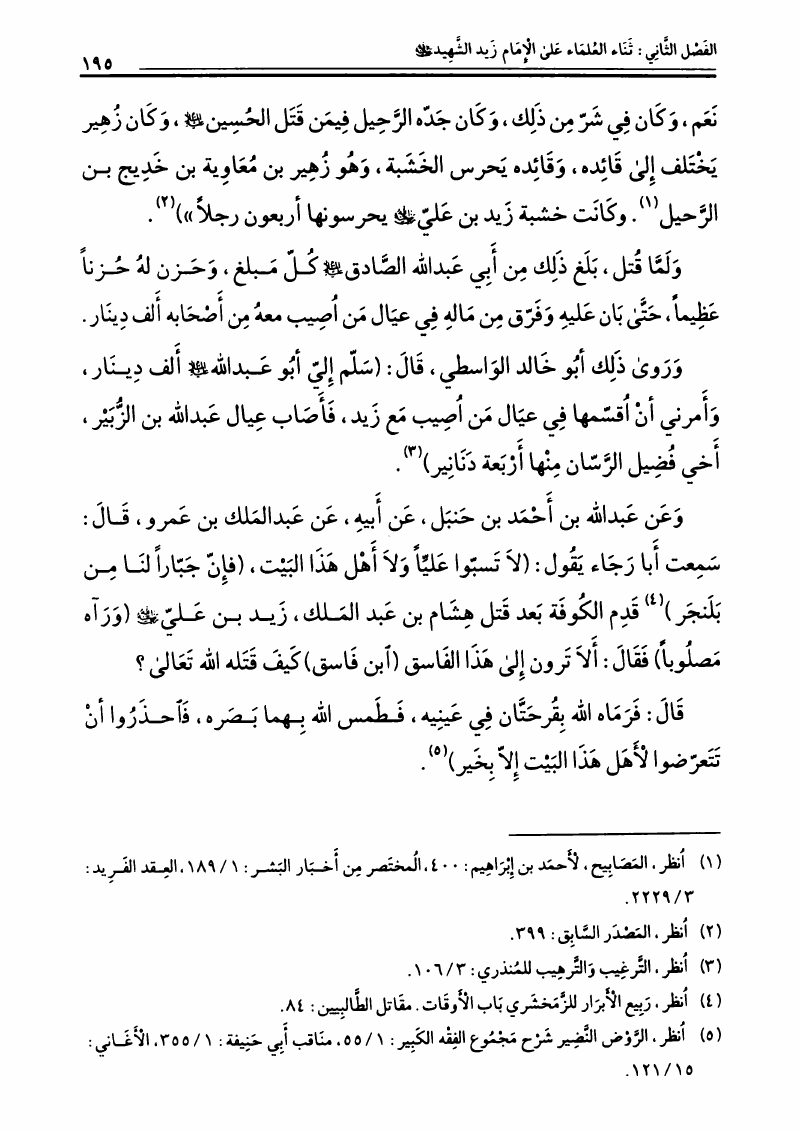 الفَصْل الثَّانِي : ثَنَاء العُلمَاء عَلىٰ الْإِمَام زَيد الشَّهِيد ﷺ
١٩٥
نَعَم ، وَكَان فِي شَرّ مِن ذَلِك ، وَكَان جَدّه الرَّحِيل فِيمَن قَتَل الحُسِين ﷺ ، وَكَان زُهِير
يَخْتَلف إِلىٰ قَائِده ، وَقَائِده يَحرس الخَشَبة ، وَهُو زُهِير بن مُعَاوِية بن خَدِيج بن
الرَّحيل(١) . وكَانَت خشبة زَيد بن عَليّ ﷺ يحرسونها أربعون رجلاً »)(٢) .
وَلَمَّا قُتل ، بَلَغ ذَلِك مِن أَبِي عَبدالله الصَّادق ﷺ كُلّ مَبلغ ، وَحَزن لهُ حُزناً
عَظِيماً ، حَتَّىٰ بَان عَليهِ وَفَرّق مِن مَالهِ فِي عيَال مَن اُصِيب معهُ مِن أَصْحَابه أَلف دِينَار .
وَرَوىٰ ذَلِك أَبُو خَالد الوَاسطي ، قَالَ : (سَلّم إِليّ أبُو عَبدالله ﷺ أَلف دِينَار ،
وَأَمرني أنْ اُقسّمها فِي عيَال مَن اُصِيب مَع زَيد ، فَأَصَاب عِيال عَبدالله بن الزُّبَيْر ،
أَخي فُضِيل الرَّسّان مِنْها أَرْبَعة دَنَانِير)(٣) .
وَعَن عَبدالله بن أَحْمَد بن حَنبَل ، عَن أَبِيه ، عَن عَبدالمَلك بن عَمرو ، قَالَ :
سَمِعت أَبا رَجَاء يَقُول : (لاَ تَسبّوا عَليَّاً وَلاَ أَهْل هَذَا البَيْت ، (فإنّ جَبّاراً لنَا مِن
بَلَنجَر )(٤) قَدِم الكُوفَة بَعد قَتل هِشَام بن عَبد المَلك ، زَيد بن عَليّ ﷺ (وَرَآه
مَصلُوباً) فَقَالَ : أَلاَ تَرون إِلىٰ هَذَا الفَاسق (ٱبن فَاسق) كَيفَ قَتَله الله تَعَالىٰ ؟
قَالَ : فَرَمَاه الله بِقُرحَتَّان فِي عَينِيه ، فَطَمس الله بِهما بَصَره ، فَٱحذَرُوا أنْ
تَتَعرّضوا لْأَهَل هَذَا البَيْت إِلاّ بِخَير)(٥) .
(١) اُنظر ، المَصَابِيح ، لْأَحمَد بن إِبْرَاهِيم : ٤٠٠ ، الُمختَصر مِن أَخبَار البَشر : ١ / ١٨٩ ، العِقد الفَرِيد :
٣ / ٢٢٢٩ .
(٢) اُنظر ، المَصْدَر السَّابِق : ٣٩٩ .
(٣) اُنظر ، التَّرغِيب وَالتَّرهِيب للمُنذري : ٣ / ١٠٦ .
(٤) اُنظر ، رَبِيع الْأَبرَار للزَّمَخشري بَاب الْأَوقَات . مقَاتل الطَّالبِيين : ٨٤ .
(٥) اُنظر ، الرَّوْض النَّضِير شَرْح مَجْمُوع الفِقْه الكَبِير : ١ / ٥٥ ، منَاقب أَبِي حَنِيفة : ١ / ٣٥٥ ، الْأَغَاني :
١٥ / ١٢١ .